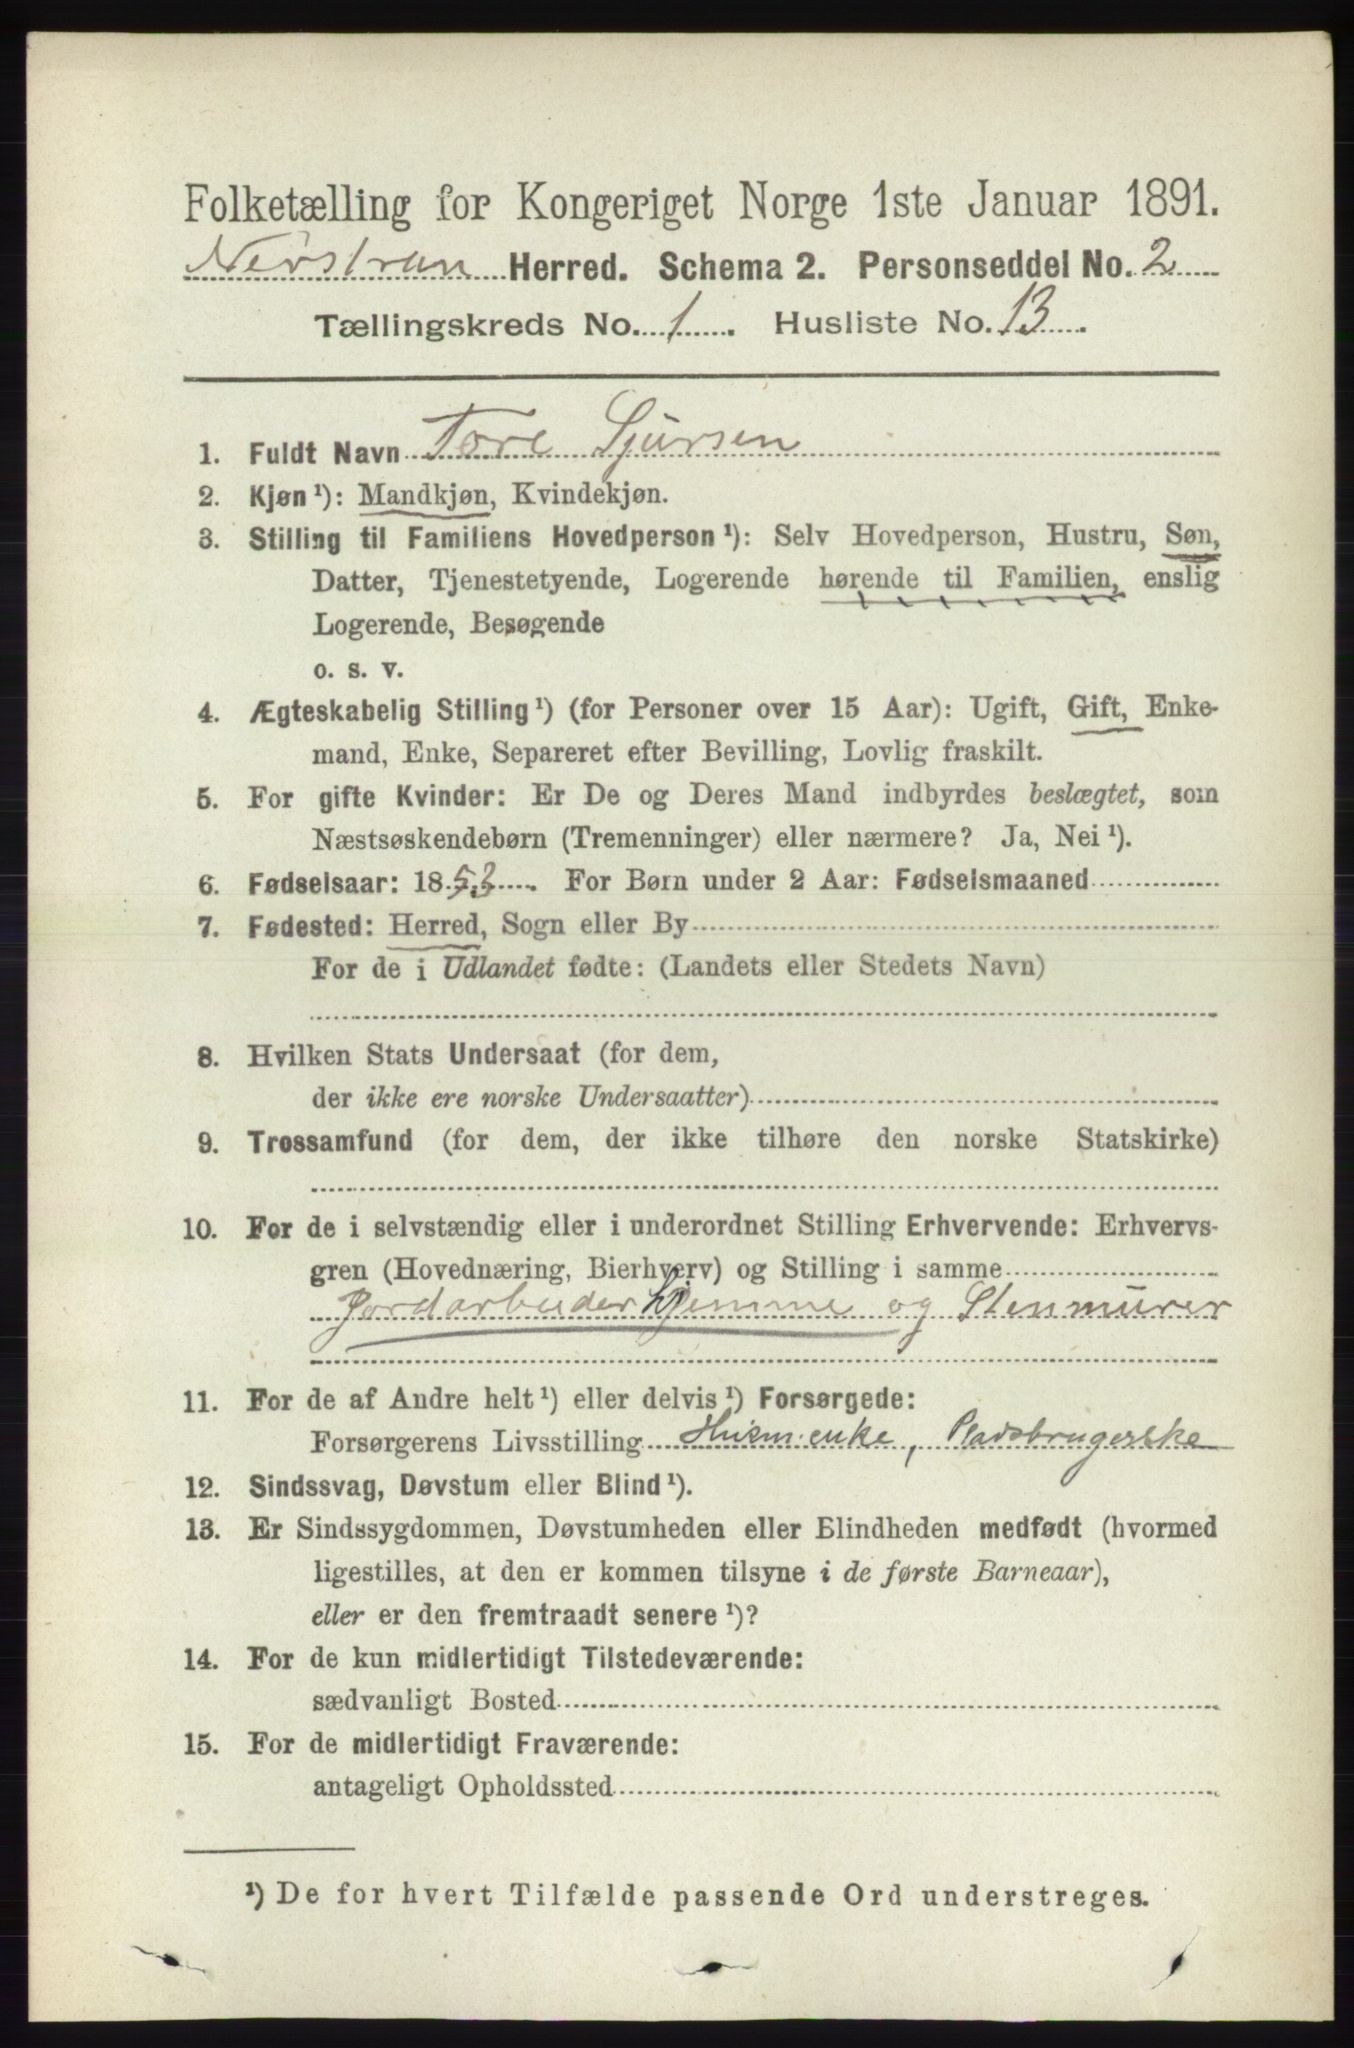 Folketælling for Kongeriget Norge 1ste Januar 1891.
Nerstran Herred. Schema 2. Personseddel No. 2
Tællingskreds No. 1. Husliste No. 13.
1. Fuldt Navn Tore Sjursen
2. Kjøn¹): Mandkjøn, Kvindekjøn.
3. Stilling til Familiens Hovedperson¹): Selv Hovedperson, Hustru, Søn,
Datter, Tjenestetyende, Logerende hørende til Familien, enslig
Logerende, Besøgende
o. s. v.
4. Ægteskabelig Stilling¹) (for Personer over 15 Aar): Ugift, Gift, Enke-
mand, Enke, Separeret efter Bevilling, Lovlig fraskilt.
5. For gifte Kvinder: Er De og Deres Mand indbyrdes beslægtet, som
Næstsøskendebørn (Tremenninger) eller nærmere? Ja, Nei¹).
6. Fødselsaar: 1853. For Børn under 2 Aar: Fødselsmaaned
7. Fødested: Herred, Sogn eller By
For de i Udlandet fødte: (Landets eller Stedets Navn)
8. Hvilken Stats Undersaat (for dem,
der ikke ere norske Undersaatter)
9. Trossamfund (for dem, der ikke tilhøre den norske Statskirke)
10. For de i selvstændig eller i underordnet Stilling Erhvervende: Erhvervs-
gren (Hovednæring, Bierhverv) og Stilling i samme
Jordarbeider hjemme og Stenmurer
11. For de af Andre helt¹) eller delvis¹) Forsørgede:
Forsørgerens Livsstilling Husm.enke, Pladsbrugerske
12. Sindssvag, Døvstum eller Blind¹).
13. Er Sindssygdommen, Døvstumheden eller Blindheden medfødt (hvormed
ligestilles, at den er kommen tilsyne i de første Barneaar),
eller er den fremtraadt senere¹)?
14. For de kun midlertidigt Tilstedeværende:
sædvanligt Bosted
15. For de midlertidigt Fraværende:
antageligt Opholdssted
¹) De for hvert Tilfælde passende Ord understreges.